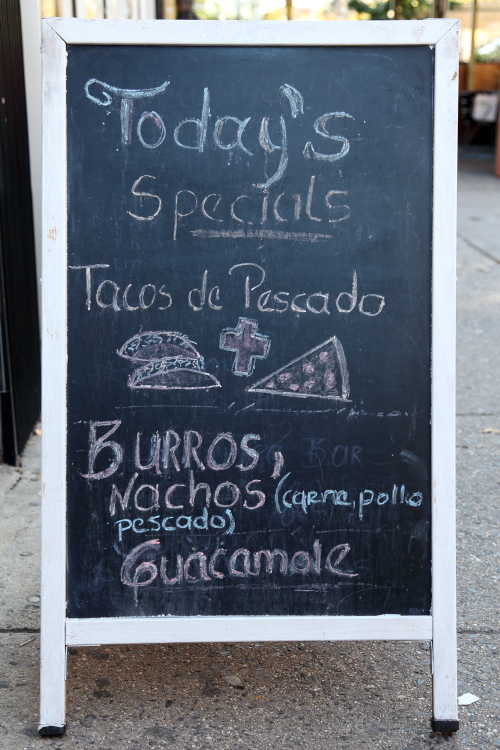 Today's
Specials
Tacos de Pescado
BURROS,
NACHOS (carne, pollo
pescado)
Guacamole